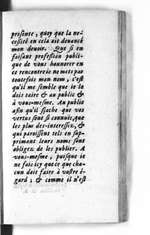 presente, quoy que la ne-
cessité en cela ait devancé
mon devoir. Que si en
faisant profession publi-
que de vous honnorer en
ce rencontre ie ne mets pas
toutesfois mon nom, c'est
qu'il me semble que ie le
dois taire & au public &
à vous-mesme. Au public
afin qu'il sçache que vos
vertus sont si connuës, que
les plus des-interessez, &
qui paroissent tels en sup-
primant leurs noms sont
obligez de les publier. A
vous-mesme, puisque ie
ne fais icy que ce que cha-
cun doit faire à vostre é-
gard ; & comme il n'est